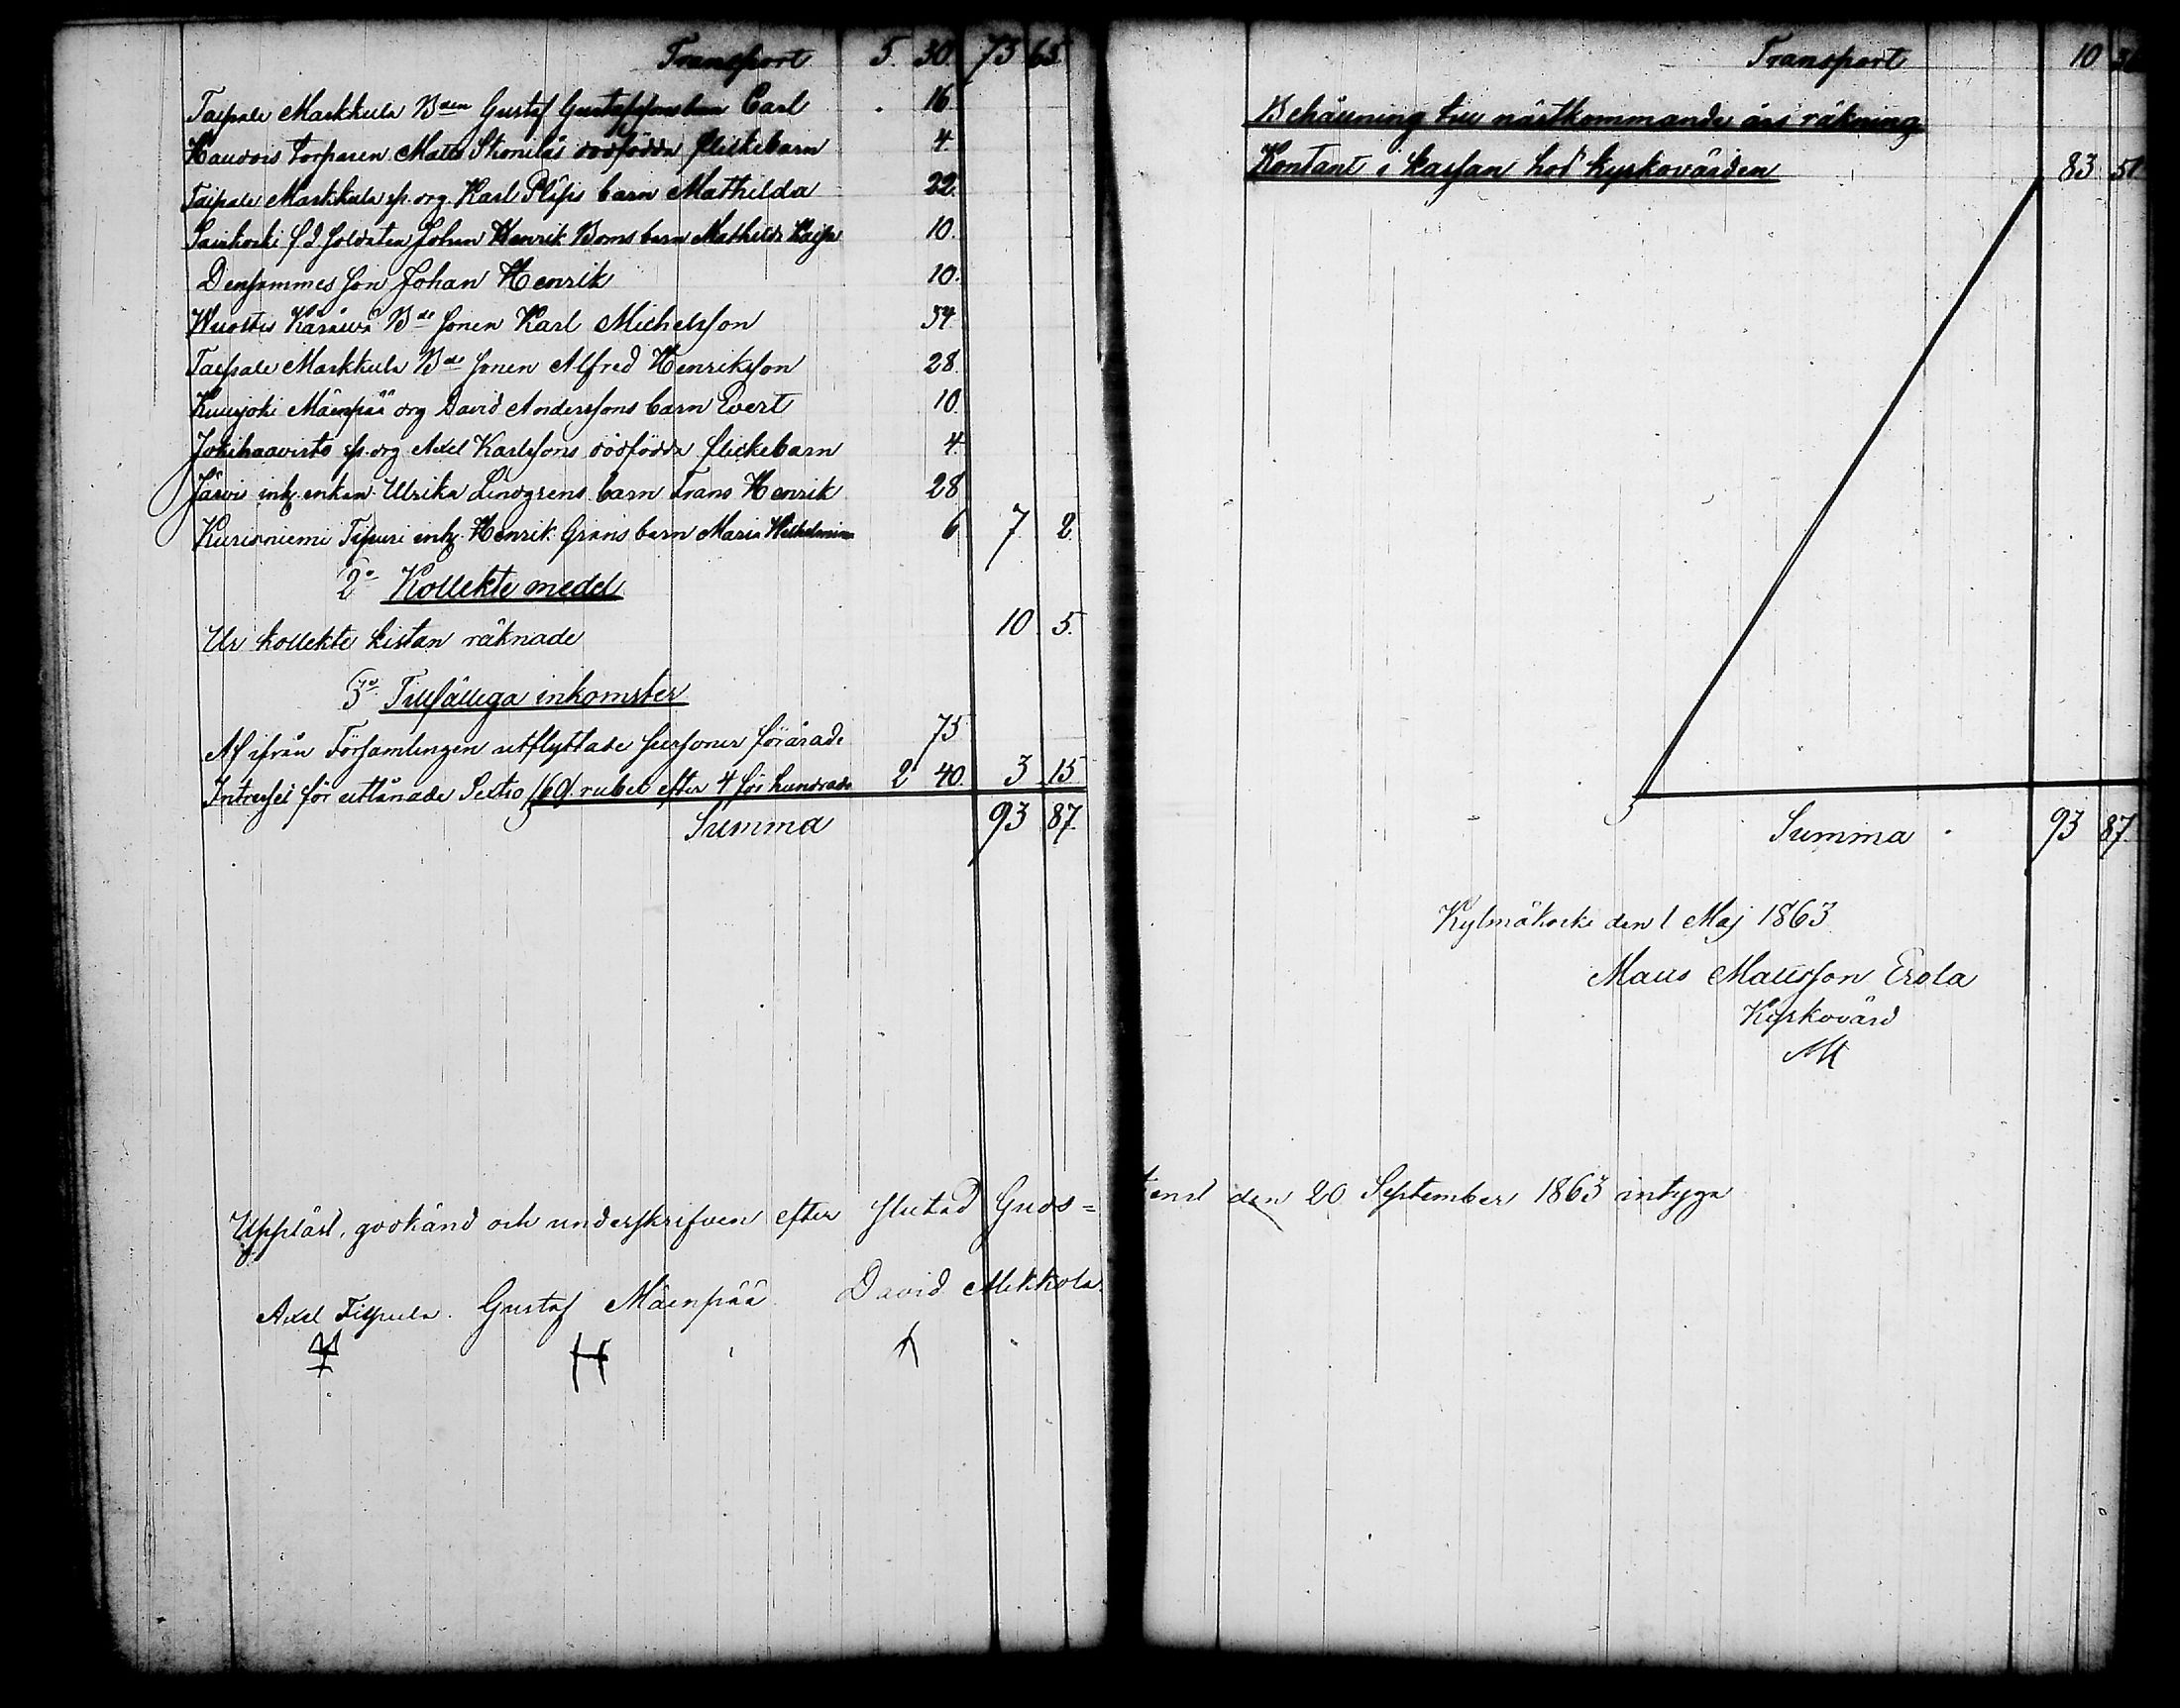 Transport 5. 30. 73 65.
Taipale Markkula Bden Gustaf Gustafssons barn Carl 16
torparen Matts dödfödda flickebarn 4
Taipale Markkula sp. org. Karl barn Mathilda 22.
f.d. soldaten Johan Henrik Boms barn Mathilda 10.
Densammes son Johan Henrik 10.
Bde sonen Karl Michelsson 54
Taipale Markkula Bde sonen Alfred Henriksson 28.
Kuurjoki Mäenpää drg David Anderssons barn Evert 10.
Jokihaavisto sp. drg Axel Karlssons dödfödda flickebarn 4.
Järvis inh. enkan Ulrika Lindgrens barn Frans Henrik 28
Kurisniemi inh. Henrik Gräns barn Maria Wilhelmina 6 7 2
2o Kollekte medel
Ur kollekte kistan räknade 10 5.
3o Tillfälliga inkomster
Af ifrån Församlingen utflyttade personer förärade 75
Intresse för utlånade Sextio /60/ rubel efter 4 för hundrade 2 40. 3 15
Summa 93 87.
Uppläst, godkänd och underskrifven efter slutad Guds=
Axel Gustaf Mäenpää David Mikkola.
Transport 10
Behållning till nästkommande års räkning
Kontant i kassan hos kyrkovärden 83 51
Summa 93 87.
Kylmäkoski den 1 Maj 1863
Matts Mattsson Erola
Kyrkovärd
tenst den 20 September 1863 intyga